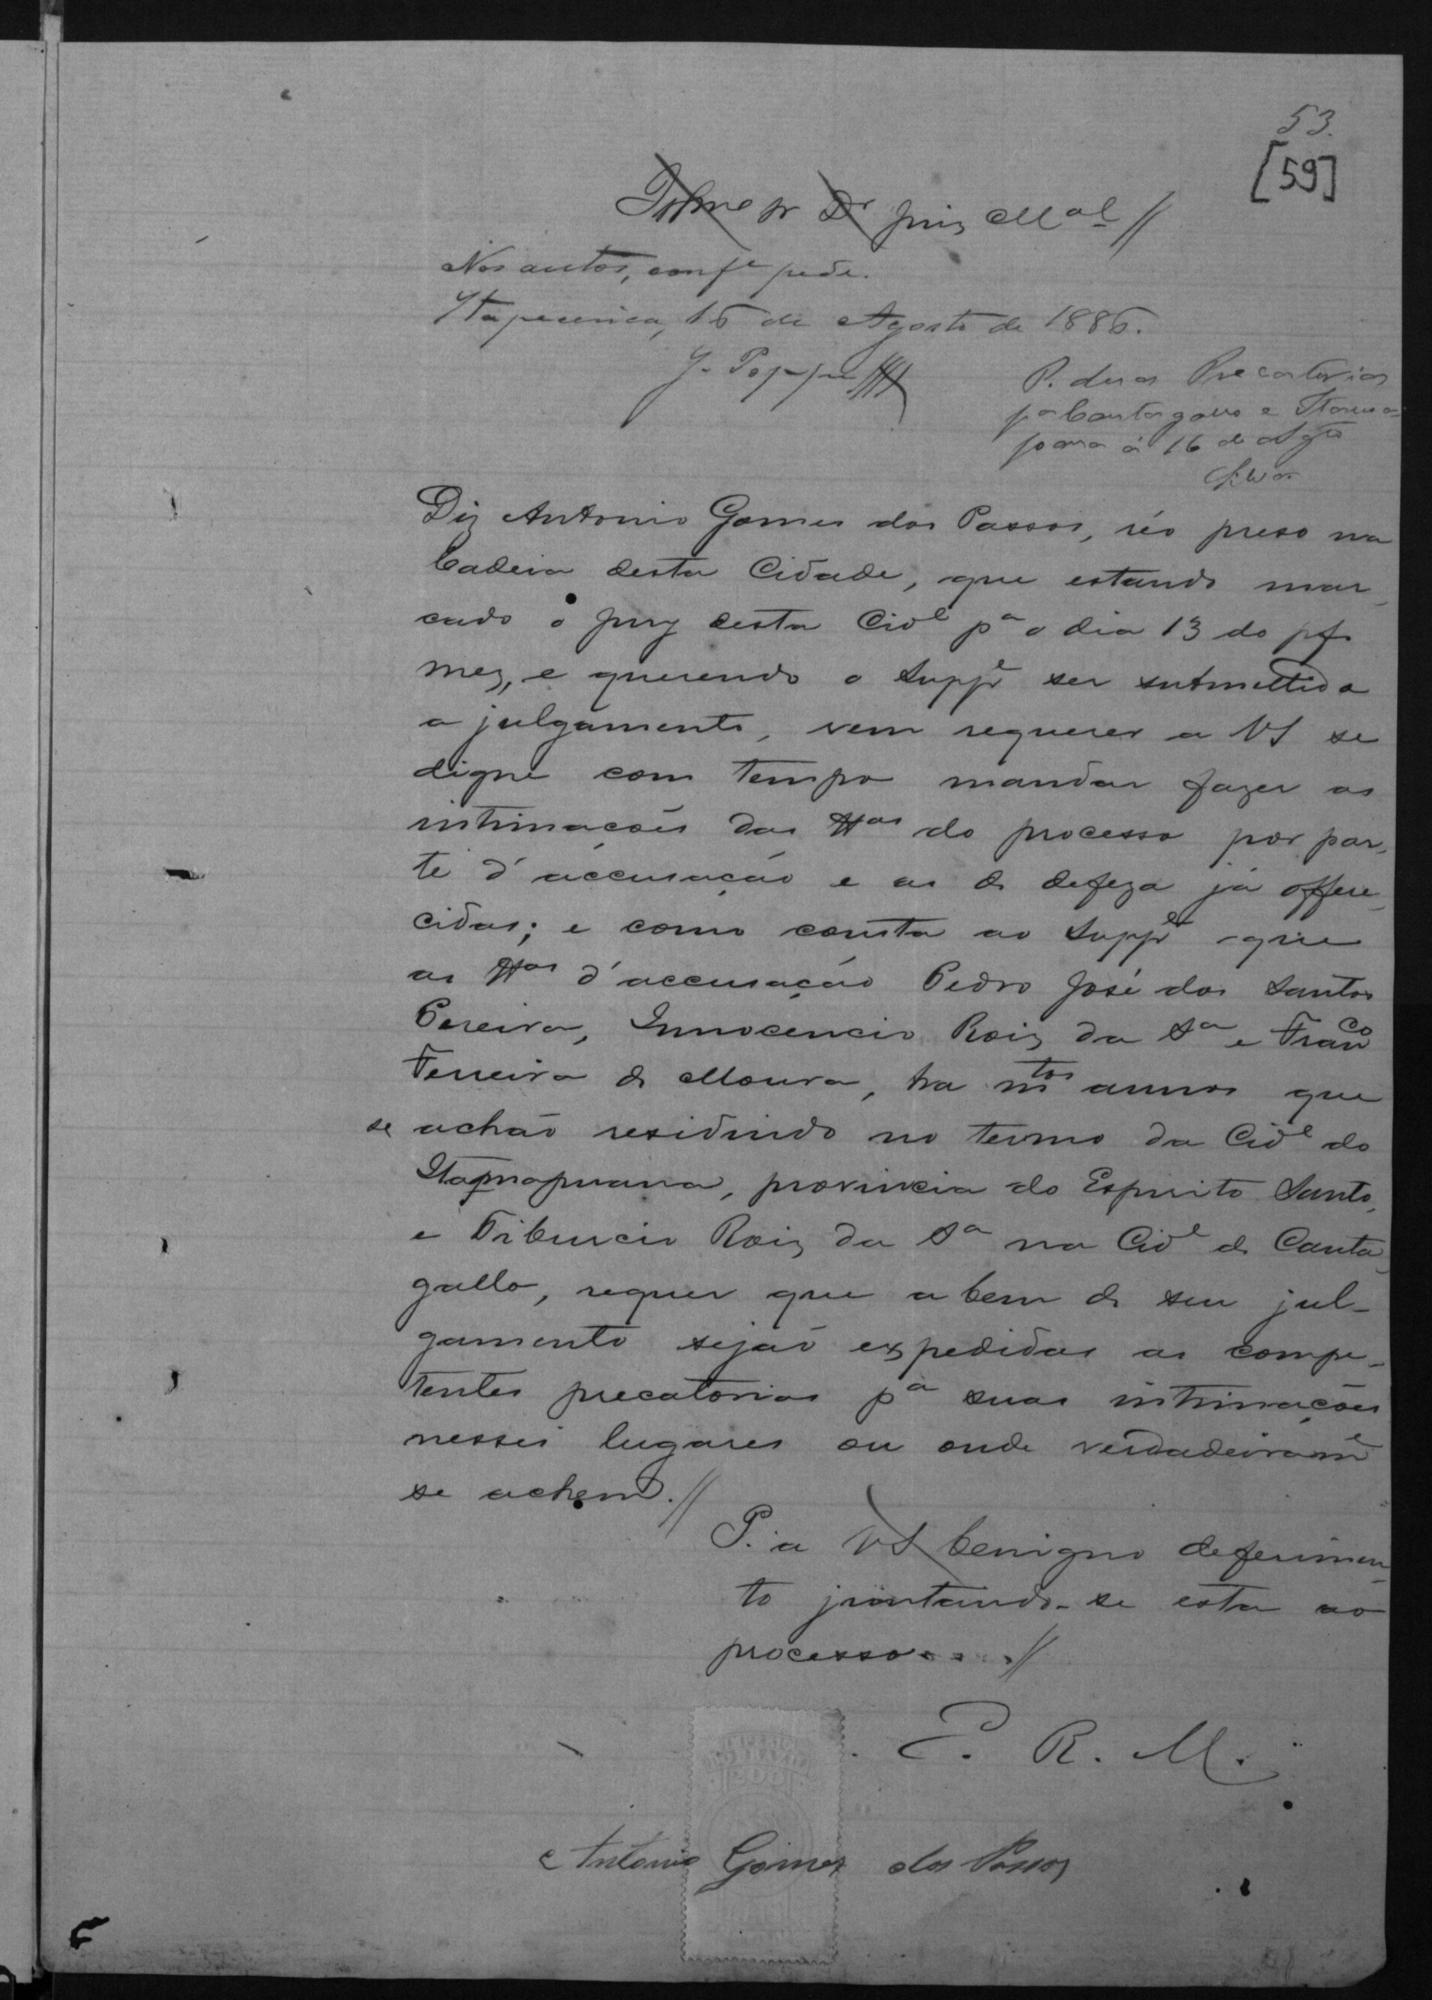 53.
[59]
Illmo Sr Dr Juiz Mal //
Nos autos, confe pede.
Itapecerica, 16 de Agosto de 1886.
P. duas Precatorias
pa Cantagallo e
16 de Agto
Silva
Diz Antonio Gomes dos Passos, réo preso na
Cadeia desta Cidade, que estando mar-
cado o jury desta Cide pa o dia 13 do pf
mez, e querendo o Suppe ser submettido
a julgamento, vem requerer a VS se
digne com tempo mandar fazer as
intimações das ttas do processo por par-
te d'accusação e as de defeza já offere-
cidas; e como consta ao Suppe que
as ttas d'accusação Pedro José dos Santos
Pereira, Innocencio Roiz da Sa e Franco
Ferreira de Moura, ha mtos annos que
se achão residindo no termo da Cide do
Itapuana, provincia do Espirito Santo,
e Tiburcio Roiz da Sa na Cide de Canta-
gallo, requer que a bem de seu jul-
gamento sejão expedidas as compe-
tentes precatorias pa suas intimações
nesses lugares ou onde verdadeirame
se achem. //
P. a VS benigno deferimen-
to juntando-se esta ao
processo. . . . //
E. R. M.
Antonio Gomes dos Passos